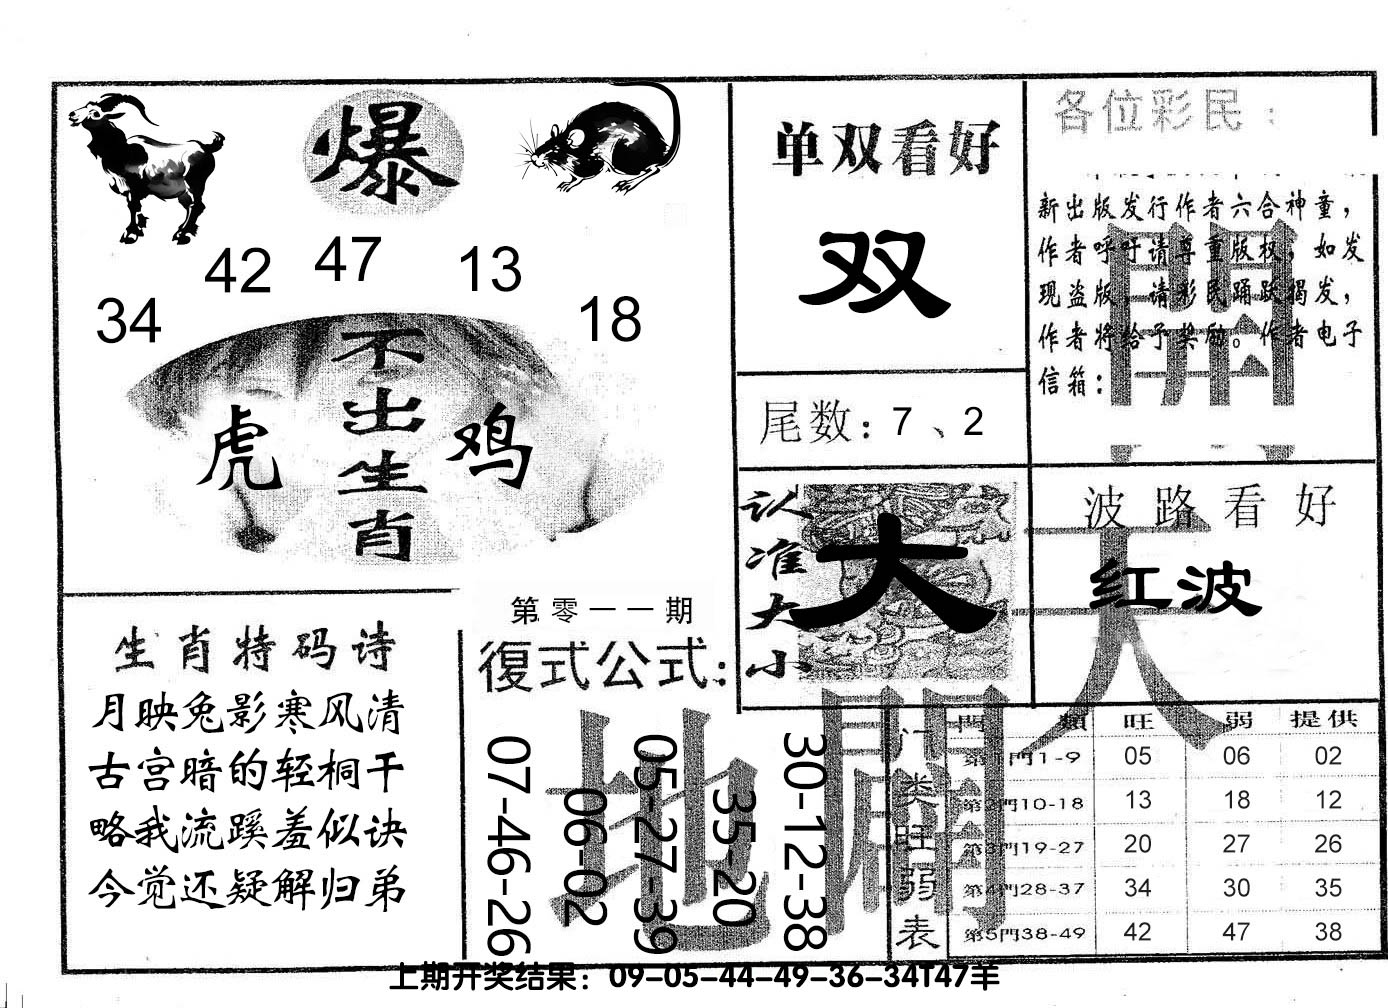 爆
42 47 13
34 18
不出生肖
虎 鸡
单双看好
双
尾数：7、2
各位彩民：
新出版发行作者六合神童，
作者呼吁请尊重版权，如发
现盗版，请彩民踊跃揭发，
作者将给予奖励。作者电子
信箱：
開
认准大小
大
波路看好
红波
天
生肖特码诗
月映兔影寒风清
古宫暗的轻桐干
略我流蹊羞似诀
今觉还疑解归弟
第零一一期
復式公式：
07-46-26
06-02
05-27-39
35-20
30-12-38
地
闢
门类旺弱表
門 類 旺 弱 提供
第1門1-9 05 06 02
第2門10-18 13 18 12
第3門19-27 20 27 26
第4門28-37 34 30 35
第5門38-49 42 47 38
上期开奖结果：09-05-44-49-36-34T47羊